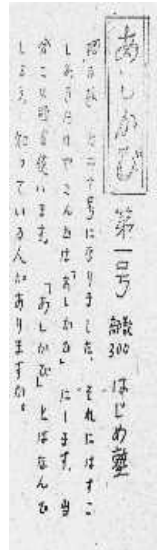 あしかび 第一号 部数300 はじめ塾
二十号になりました。それにはすこ
しあきたのでこんどは「あしかび」にします。当
分この題を使います。「あしかび」とはなんで
しょう。知っている人がありますか。